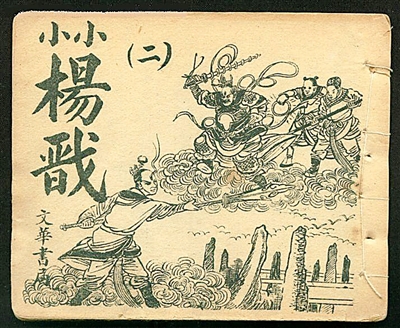 小小
楊戩
(二)
文華書局